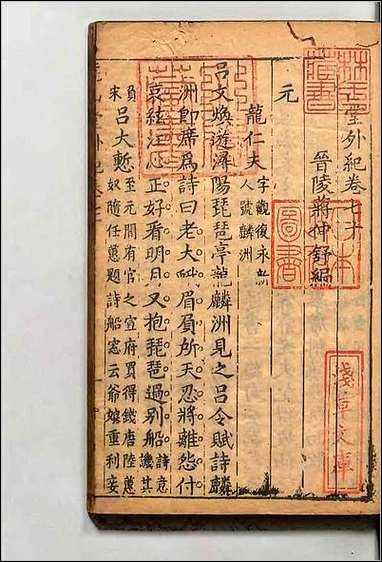 堂外紀卷七十
晉陵蔣仲舒編
元
龍仁夫 字觀復永新
人號麟洲
呂文煥遊潯陽琵琶亭龍麟洲見之呂令賦詩麟
洲即席爲詩曰老大蛾眉負所天忍將離怨付
哀絃江心正好看明月又抱琵琶過別船 詩意
譏其
負
宋
呂大 至元間有官之宣府買得錢唐陸蕙
奴隨任蕙題詩船窓云爺孃重利妾
林氏
藏書
淺草文庫